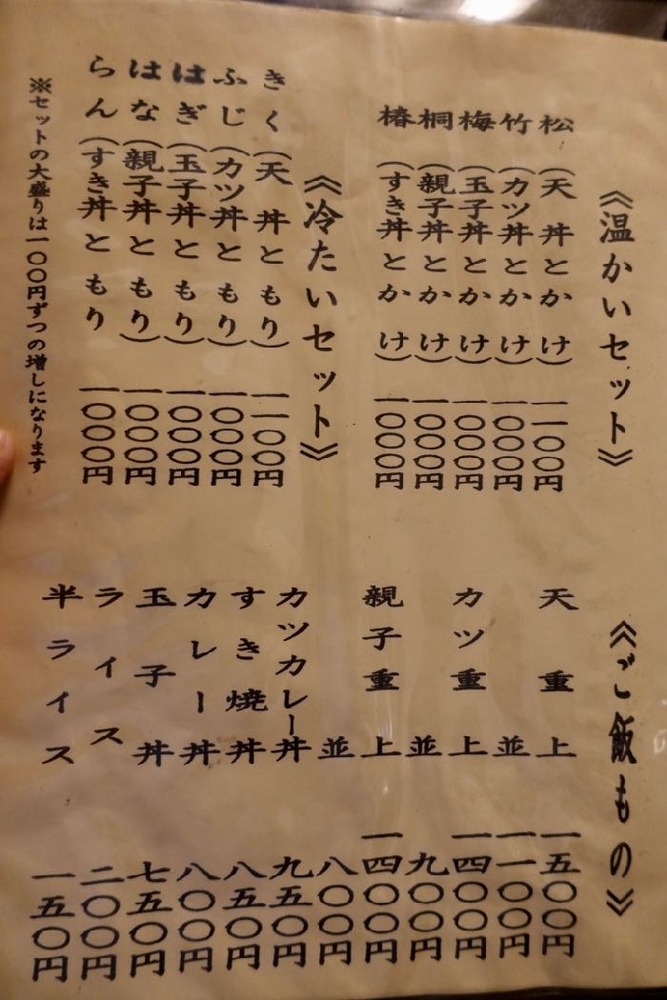 《温かいセット》
松（天丼とかけ）一一〇〇円
竹（カツ丼とかけ）一〇〇〇円
梅（玉子丼とかけ）一〇〇〇円
桐（親子丼とかけ）一〇〇〇円
椿（すき丼とかけ）一〇〇〇円
《冷たいセット》
きく（天丼ともり）一一〇〇円
ふじ（カツ丼ともり）一〇〇〇円
はぎ（玉子丼ともり）一〇〇〇円
はな（親子丼ともり）一〇〇〇円
らん（すき丼ともり 一〇〇〇円
※セットの大盛りは一〇〇円ずつの増しになります
《ご飯もの》
天重 上 一五〇〇円
並 一一〇〇円
カツ重 上 一四〇〇円
並 九〇〇円
親子重 上 一四〇〇円
並 八〇〇円
カツカレー丼 九五〇円
すき焼丼 八五〇円
カレー丼 八〇〇円
玉子丼 七五〇円
ライス 二〇〇円
半ライス 一五〇円